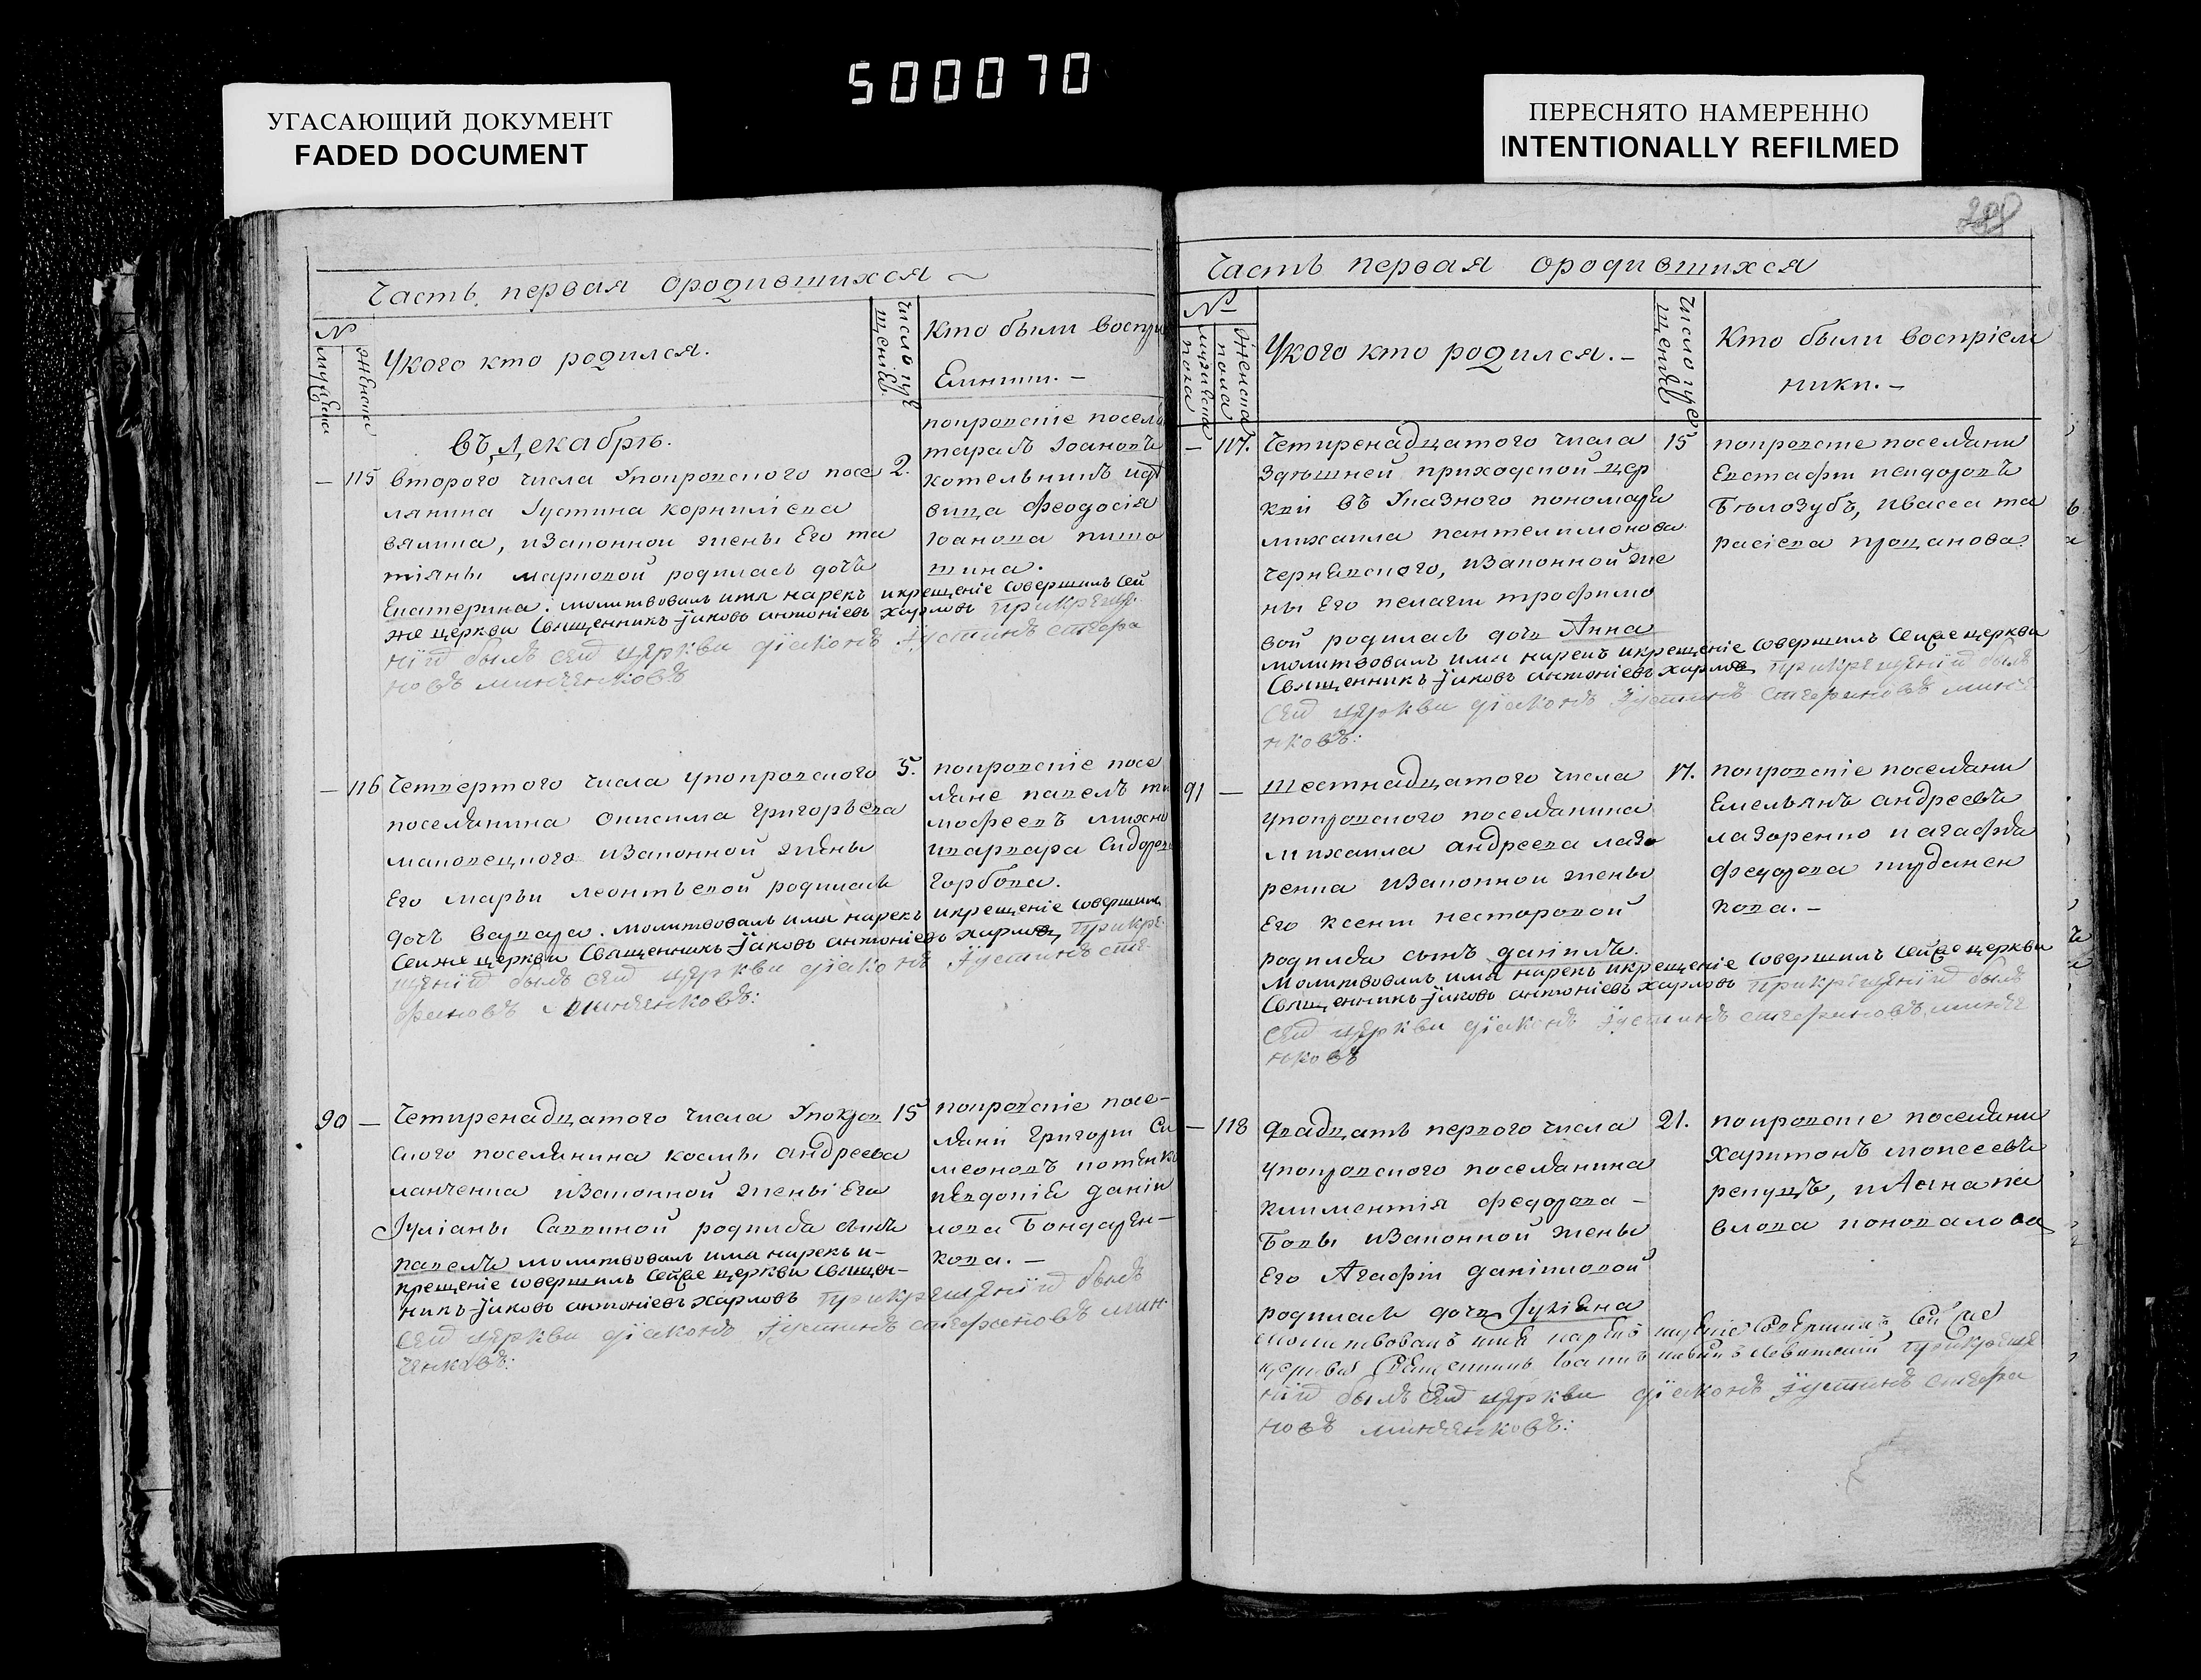 500070
УГАСАЮЩИЙ ДОКУМЕНТ
FADED DOCUMENT
ПЕРЕСНЯТО НАМЕРЕННО
INTENTIONALLY REFILMED
Часть первая ородившихся
№
Укого кто родился.
Кто были воспрі
Емники.
въ Декабрѣ.
115 второго числа Упокровского посе
лянина Іустина корниліева
вялина, изаконной жены Его та
тіяны марковой родилась дочь
Екатерина. молитвовалъ имя нарекъ икрещеніе совершилъ сей
же церкви Священникъ Іаковъ антоніевъ харловъ прикреще
ніи былъ сей церкви діаконъ Іустинъ стефа
новъ минченковъ
2.
покровскіе посел
тарасъ Іоановъ
котельникъ идѣ
вица феодосія
Іоанова
116 Четвертого числа упокровского
поселянина онисима Григорьева
маковецкого изаконной жены
Его марьи леонтьевой родилась
дочь варвара. молитвовалъ имя нарекъ икрещеніе совершилъ
сейже церкви Священникъ Іаковъ антоніевъ харловъ, прикре
щеніи былъ сей церкви діаконъ Іустинъ сте
фановъ минченковъ:
5.
покровскіе посе
ляне павелъ ти
мофеевъ михно
иварвара Сидоров
горбова.
90 — Четиренадцатого числа Упокров
ского поселянина космы андреева
ланченка изаконной жены Его
Іуліаны Саввиной родился сынъ
павелъ молитвовалъ имя нарекъ и-
крещеніе совершилъ сейже церкви Священ-
никъ Іаковъ антоніевъ харловъ прикрещеніи былъ
сей церкви діаконъ Іустинъ стефановъ мин-
ченковъ:
15
покровскіе посе-
ляни Григори Си
меоновъ потенко
иевдокія дани
лова Бондарен-
кова. —
Часть первая ородившихся
№
Укого кто родился. —
Кто были воспріем
ники. —
— 117. Четиренадцатого числа
здѣшней приходской цер
кви въ Указного пономаря
михаила пантелимонова
чернявского, изаконной же
ны Его пелагіи трофимо
вой родилась дочь Анна
молитвовалъ имя нарекъ икрещеніе совершилъ сейже церкви
Священникъ Іаковъ антоніевъ харловъ прикрещеніи былъ
сей церкви діаконъ Іустинъ стефановъ минче
нковъ:
15
покровскіе поселяни
Евстафіи
Бѣлозубъ, ивасса та
расіева
91 — шестнадцатого числа
упокровского поселянина
михаила андреева лазо
ренка изаконной жены
Его ксеніи несторовой
родился сынъ даніилъ.
Молитвовалъ имя нарекъ икрещеніе совершилъ сейже церкви
Священникъ Іаковъ антоніевъ харловъ прикрещеніи былъ
сей церкви діаконъ Іустинъ стефановъ минче
нковъ
17.
покровскіе поселяни
Емельянъ андреевъ
лазоренко иагафія
федорова
кова. —
— 118 двадцать первого числа
упокровского поселянина
климентія федорова —
Бовы изаконной жены
Его Агафіи даніиловой
родилась дочь Іуліана
молитвовалъ имя нарекъ икрещеніе совершилъ сейже
церкви Священникъ Іоаннъ прикреще
ніи былъ сей церкви діаконъ Іустинъ стефа
новъ минченковъ:
21.
покровскіе поселяни
харитонъ моисеевъ
репицъ, иАннапа
влова коновалова